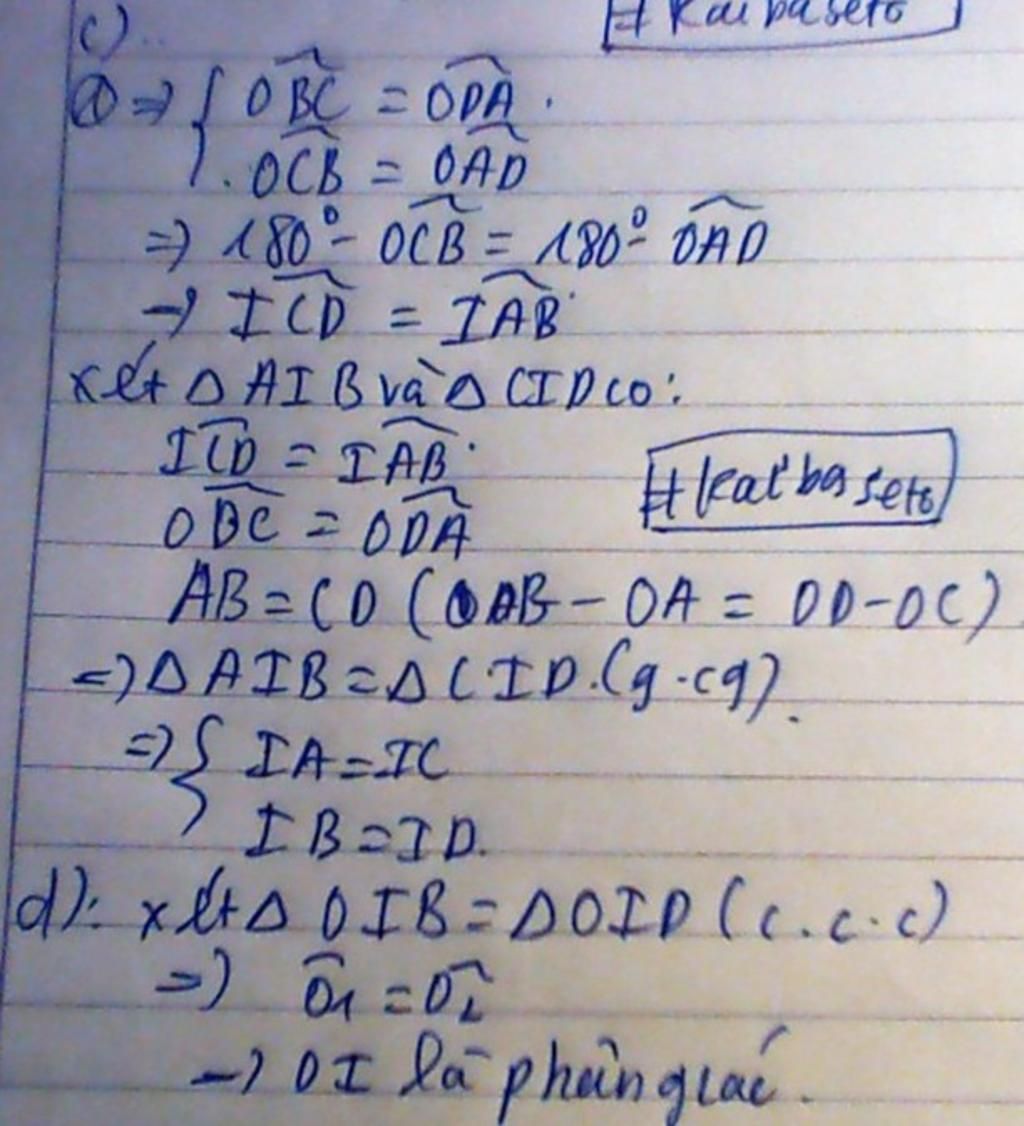 # Kaibaseto
c)
ⓐ => { OBC = ODA .
. OCB = OAD
=> 180° - OCB = 180° - OAD
-> ICD = IAB
xét Δ AIB và Δ CID co:
ICD = IAB
OBC = ODA
# kaibaseto
AB = CD (OB - OA = OD - OC)
=> Δ AIB = Δ CID. (g.cg).
=> { IA = IC
IB = ID.
d): xét Δ OIB = Δ OID (c.c.c)
=> Ô1 = Ô2
-> OI là phân giác.